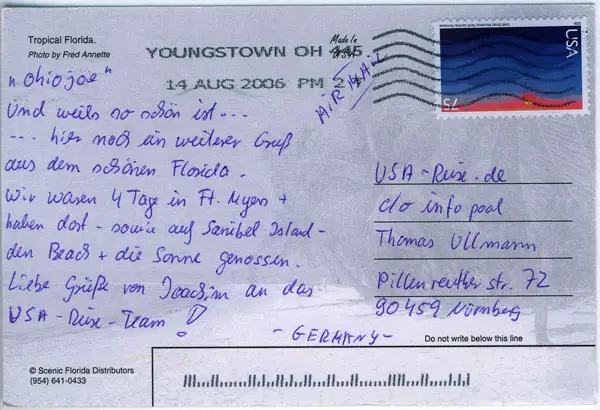 Tropical Florida.
Photo by Fred Annette
Made in
YOUNGSTOWN OH 445
14 AUG 2006 PM 2
AIR MAIL
USA
75
"ohiojoe"
Und weils so schön ist...
... hier noch ein weiterer Gruß
aus dem schönen Florida.
Wir waren 4 Tage in Ft. Myers +
haben dort - sowie auf Sanibel Island -
den Beach + die Sonne genossen.
Liebe Grüße von Joachim an das
USA-Reise-Team!
USA-Reise.de
c/o info pool
Thomas Ullmann
Pillenreuther Str. 72
90459 Nürnberg
- GERMANY -
Do not write below this line
© Scenic Florida Distributors
(954) 641-0433